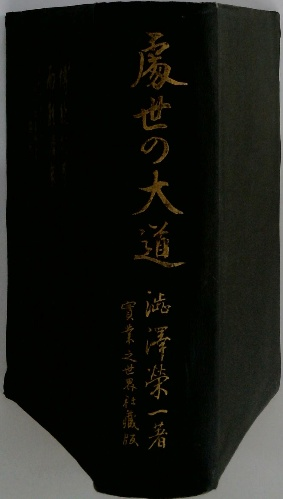 處世の大道
澁澤榮一著
實業之世界社藏版